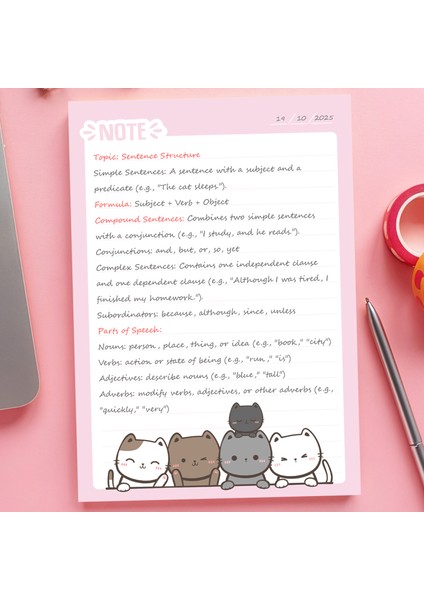 NOTE
19 / 10 / 2025
Topic: Sentence Structure
Simple Sentences: A sentence with a subject and a
predicate (e.g., "The cat sleeps.").
Formula: Subject + Verb + Object
Compound Sentences: Combines two simple sentences
with a conjunction (e.g., "I study, and he reads.").
Conjunctions: and, but, or, so, yet
Complex Sentences: Contains one independent clause
and one dependent clause (e.g., "Although I was tired, I
finished my homework.").
Subordinators: because, although, since, unless
Parts of Speech:
Nouns: person, place, thing, or idea (e.g., "book," "city")
Verbs: action or state of being (e.g., "run," "is")
Adjectives: describe nouns (e.g., "blue," "tall")
Adverbs: modify verbs, adjectives, or other adverbs (e.g.,
"quickly," "very")